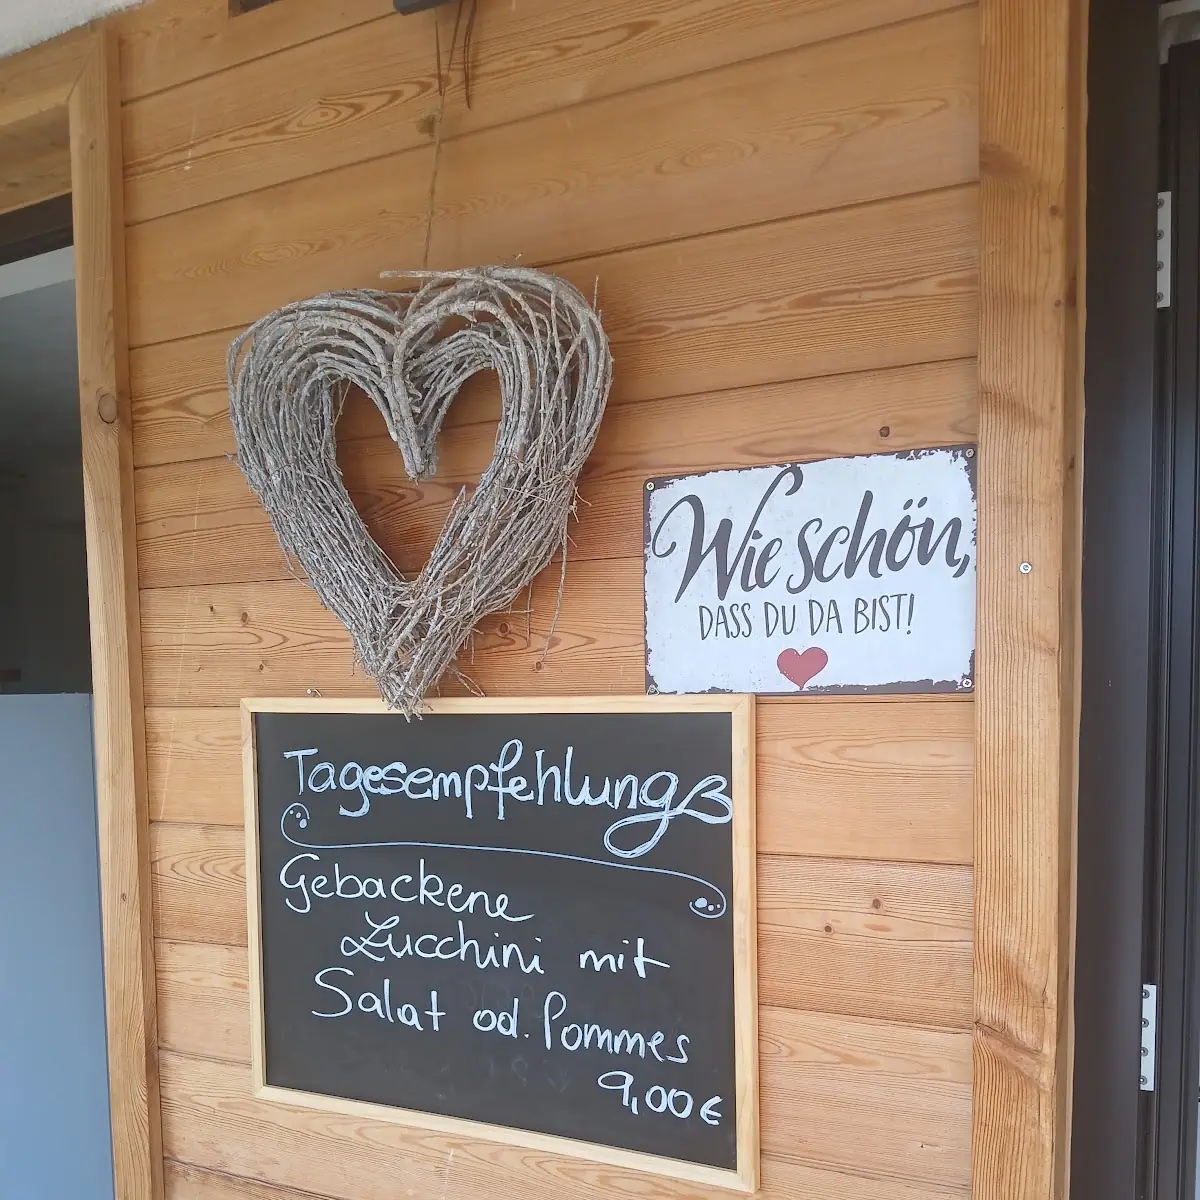 Wie schön,
DASS DU DA BIST!
Tagesempfehlung
Gebackene
Zucchini mit
Salat od. Pommes
9,00€